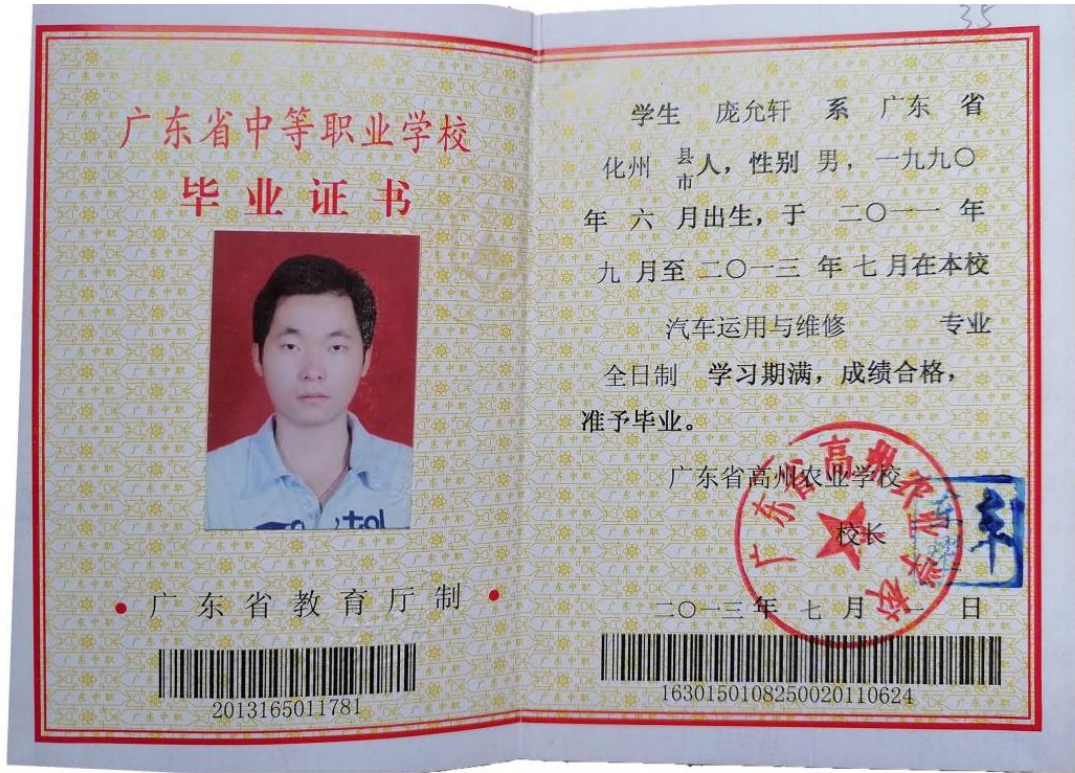 广东省中等职业学校
毕业证书
tal
·广东省教育厅制·
2013165011781
35
学生 庞允轩 系 广东 省
化州 县市人，性别 男，一九九〇
年 六 月出生，于 二〇一一 年
九 月至 二〇一三 年 七 月在本校
汽车运用与维修 专业
全日制 学习期满，成绩合格，
准予毕业。
广东省高州农业学校
校长
广东省高州农业学校
二〇一三 年 七 月 一 日
163015010825002011​0624